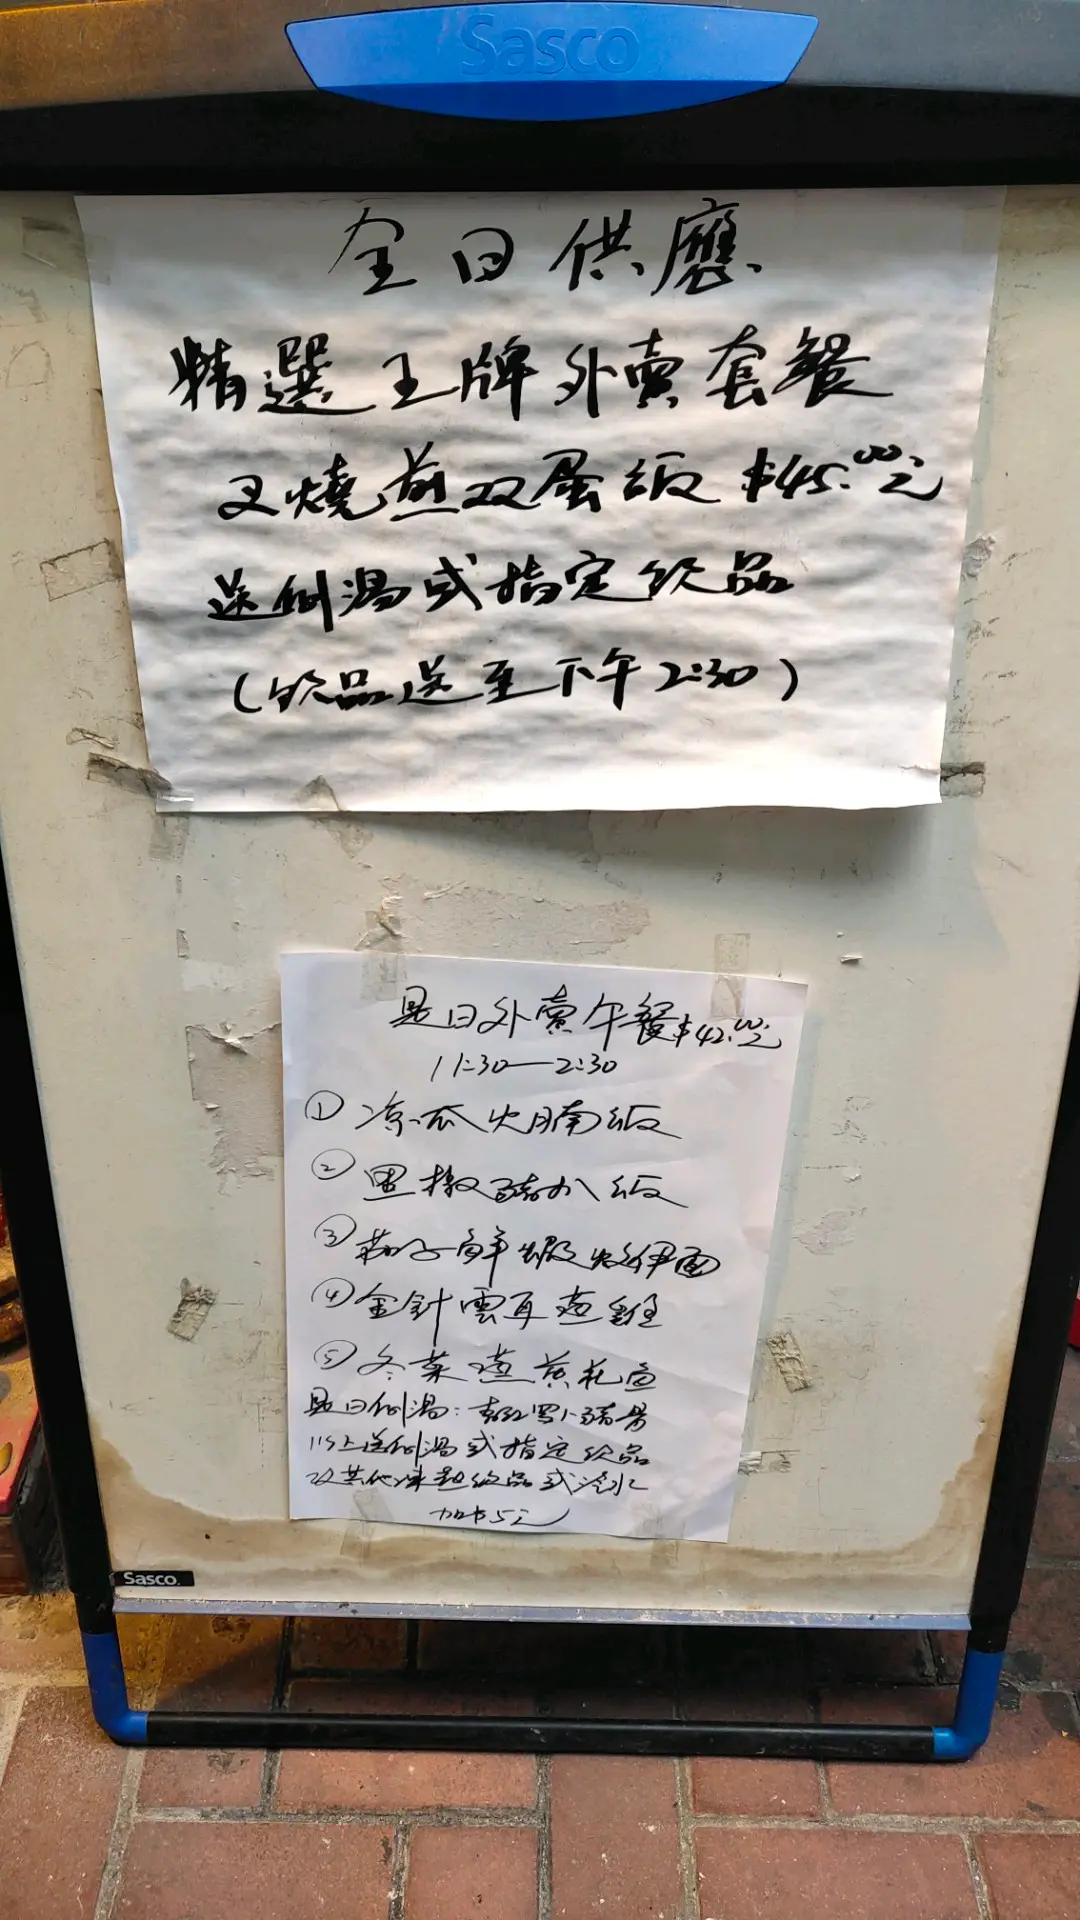 Sasco
全日供應
精選王牌外賣套餐
叉燒煎双蛋飯 $45.00元
送例湯或指定飲品
(飲品送至下午2:30)
是日外賣午餐$42.00元
11:30—2:30
① 凉瓜火腩飯
② 黑椒豬扒飯
③ 茄子鮮蝦炆伊面
④ 金針雲耳蒸雞
⑤ 冬菜蒸黃花魚
是日例湯: 青紅罗卜豬骨
以上送例湯或指定飲品
其他凍飲品或汽水
加$5元
Sasco.